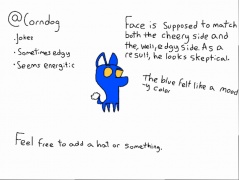 @Corndog
• Jokes
• Sometimes edgy
• Seems energitic
Face is supposed to match
both the cheery side and
the, well, edgy side. As a
result, he looks skeptical.
The blue felt like a mood
-y color
Feel free to add a hat or something.